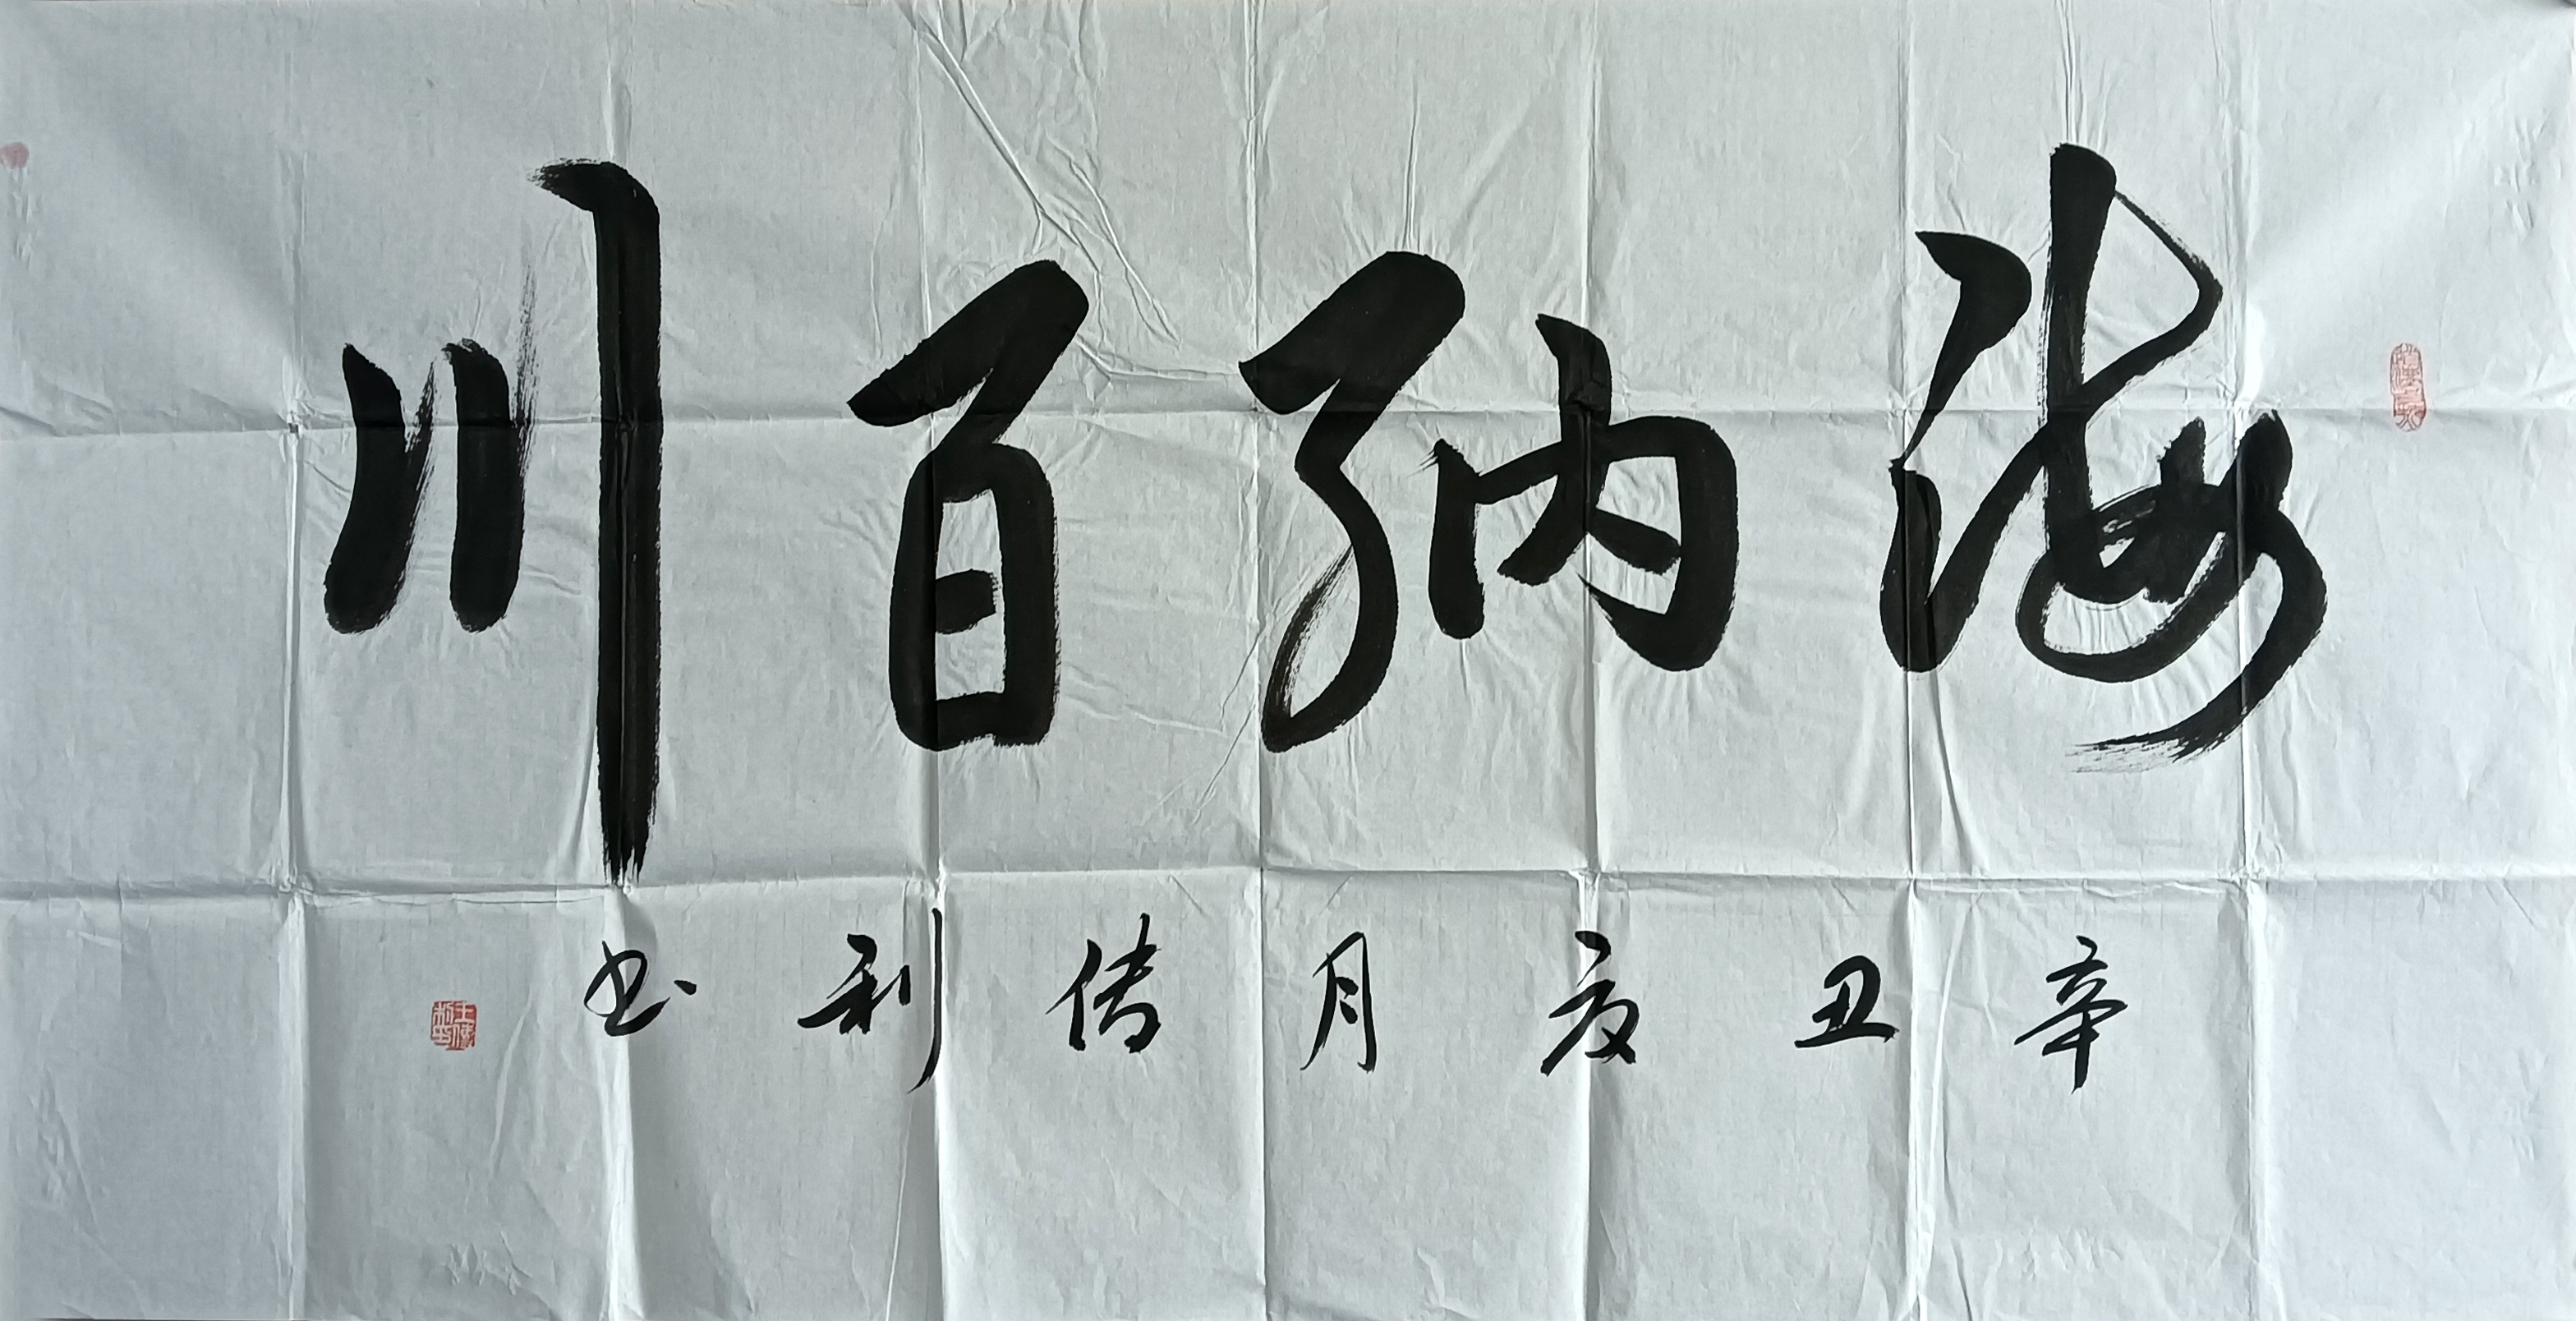 海纳百川
辛丑夏月传利书